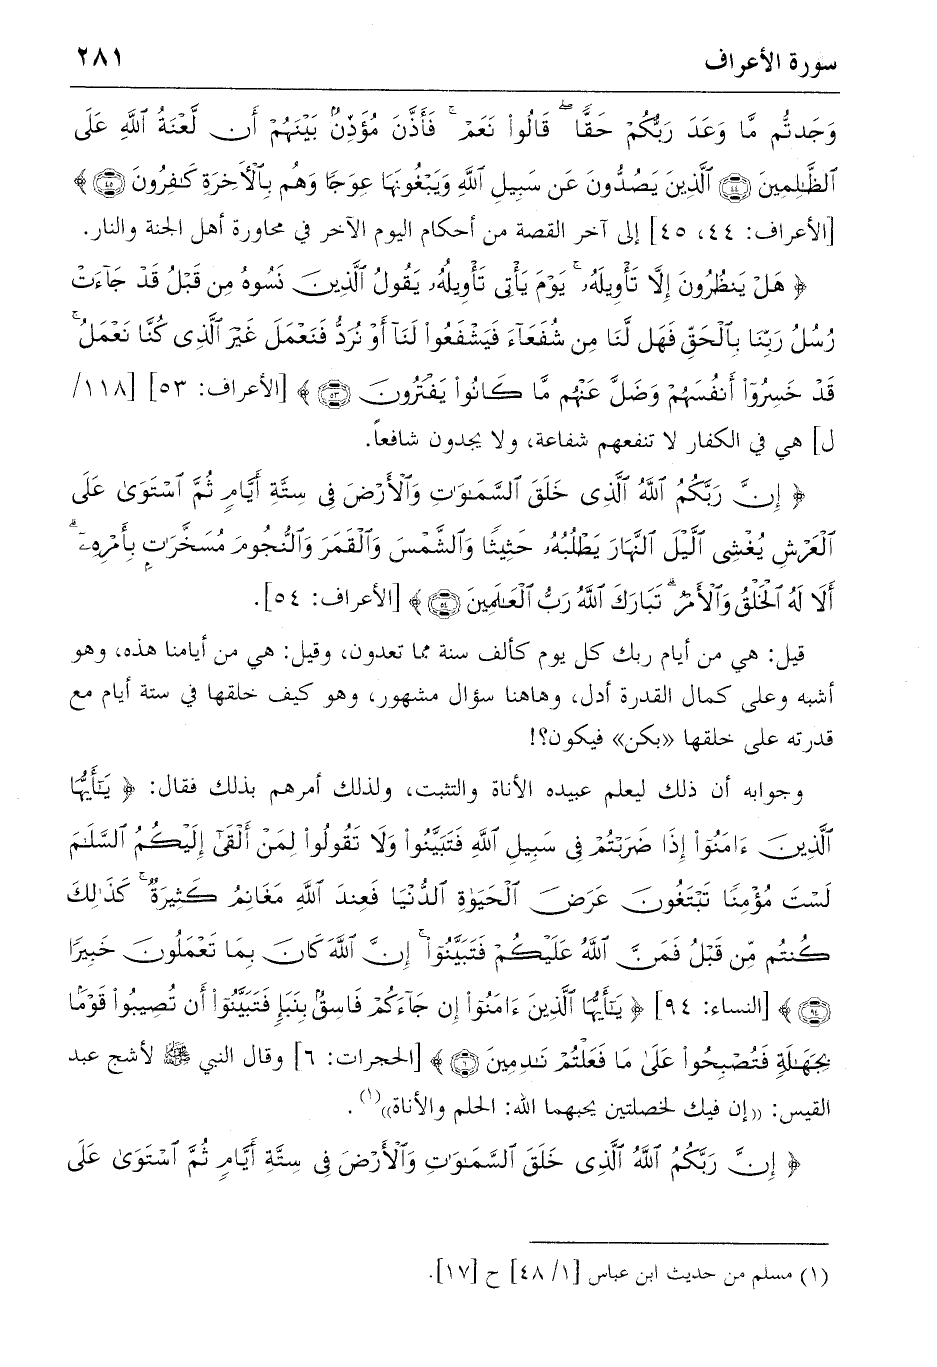 سورة الأعراف ٢٨١
وَجَدتُّم مَّا وَعَدَ رَبُّكُمْ حَقًّا ۖ قَالُوا۟ نَعَمْ ۚ فَأَذَّنَ مُؤَذِّنٌۢ بَيْنَهُمْ أَن لَّعْنَةُ ٱللَّهِ عَلَى
ٱلظَّـٰلِمِينَ ﴿٤٤﴾ ٱلَّذِينَ يَصُدُّونَ عَن سَبِيلِ ٱللَّهِ وَيَبْغُونَهَا عِوَجًا وَهُم بِٱلْـَٔاخِرَةِ كَـٰفِرُونَ ﴿٤٥﴾ ﴾
[الأعراف: ٤٤، ٤٥] إلى آخر القصة من أحكام اليوم الآخر في محاورة أهل الجنة والنار.
﴿ هَلْ يَنظُرُونَ إِلَّا تَأْوِيلَهُۥ ۚ يَوْمَ يَأْتِى تَأْوِيلُهُۥ يَقُولُ ٱلَّذِينَ نَسُوهُ مِن قَبْلُ قَدْ جَآءَتْ
رُسُلُ رَبِّنَا بِٱلْحَقِّ فَهَل لَّنَا مِن شُفَعَآءَ فَيَشْفَعُوا۟ لَنَآ أَوْ نُرَدُّ فَنَعْمَلَ غَيْرَ ٱلَّذِى كُنَّا نَعْمَلُ ۚ
قَدْ خَسِرُوٓا۟ أَنفُسَهُمْ وَضَلَّ عَنْهُم مَّا كَانُوا۟ يَفْتَرُونَ ﴿٥٣﴾ ﴾ [الأعراف: ٥٣] [١١٨/
ل] هي في الكفار لا تنفعهم شفاعة، ولا يجدون شافعاً.
﴿ إِنَّ رَبَّكُمُ ٱللَّهُ ٱلَّذِى خَلَقَ ٱلسَّمَـٰوَٰتِ وَٱلْأَرْضَ فِى سِتَّةِ أَيَّامٍ ثُمَّ ٱسْتَوَىٰ عَلَى
ٱلْعَرْشِ يُغْشِى ٱلَّيْلَ ٱلنَّهَارَ يَطْلُبُهُۥ حَثِيثًا وَٱلشَّمْسَ وَٱلْقَمَرَ وَٱلنُّجُومَ مُسَخَّرَٰتٍۭ بِأَمْرِهِۦٓ ۗ
أَلَا لَهُ ٱلْخَلْقُ وَٱلْأَمْرُ ۗ تَبَارَكَ ٱللَّهُ رَبُّ ٱلْعَـٰلَمِينَ ﴿٥٤﴾ ﴾ [الأعراف: ٥٤].
قيل: هي من أيام ربك كل يوم كألف سنة مما تعدون، وقيل: هي من أيامنا هذه، وهو
أشبه وعلى كمال القدرة أدل، وهاهنا سؤال مشهور، وهو كيف خلقها في ستة أيام مع
قدرته على خلقها «بكن» فيكون؟!
وجوابه أن ذلك ليعلم عبيده الأناة والتثبت، ولذلك أمرهم بذلك فقال: ﴿ يَـٰٓأَيُّهَا
ٱلَّذِينَ ءَامَنُوٓا۟ إِذَا ضَرَبْتُمْ فِى سَبِيلِ ٱللَّهِ فَتَبَيَّنُوا۟ وَلَا تَقُولُوا۟ لِمَنْ أَلْقَىٰٓ إِلَيْكُمُ ٱلسَّلَـٰمَ
لَسْتَ مُؤْمِنًا تَبْتَغُونَ عَرَضَ ٱلْحَيَوٰةِ ٱلدُّنْيَا فَعِندَ ٱللَّهِ مَغَانِمُ كَثِيرَةٌ ۚ كَذَٰلِكَ
كُنتُم مِّن قَبْلُ فَمَنَّ ٱللَّهُ عَلَيْكُمْ فَتَبَيَّنُوٓا۟ ۚ إِنَّ ٱللَّهَ كَانَ بِمَا تَعْمَلُونَ خَبِيرًا
﴿٩٤﴾ ﴾ [النساء: ٩٤] ﴿ يَـٰٓأَيُّهَا ٱلَّذِينَ ءَامَنُوٓا۟ إِن جَآءَكُمْ فَاسِقٌۢ بِنَبَإٍ فَتَبَيَّنُوٓا۟ أَن تُصِيبُوا۟ قَوْمًۢا
بِجَهَـٰلَةٍ فَتُصْبِحُوا۟ عَلَىٰ مَا فَعَلْتُمْ نَـٰدِمِينَ ﴿٦﴾ ﴾ [الحجرات: ٦] وقال النبي ﷺ لأشج عبد
القيس: «إن فيك لخصلتين يحبهما الله: الحلم والأناة»(١).
﴿ إِنَّ رَبَّكُمُ ٱللَّهُ ٱلَّذِى خَلَقَ ٱلسَّمَـٰوَٰتِ وَٱلْأَرْضَ فِى سِتَّةِ أَيَّامٍ ثُمَّ ٱسْتَوَىٰ عَلَى
(١) مسلم من حديث ابن عباس [١/ ٤٨] ح [١٧].